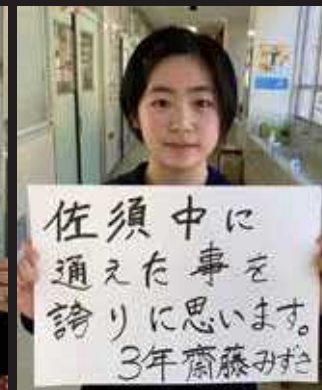 佐須中に
通えた事を
誇りに思います。
3年齋藤みずき